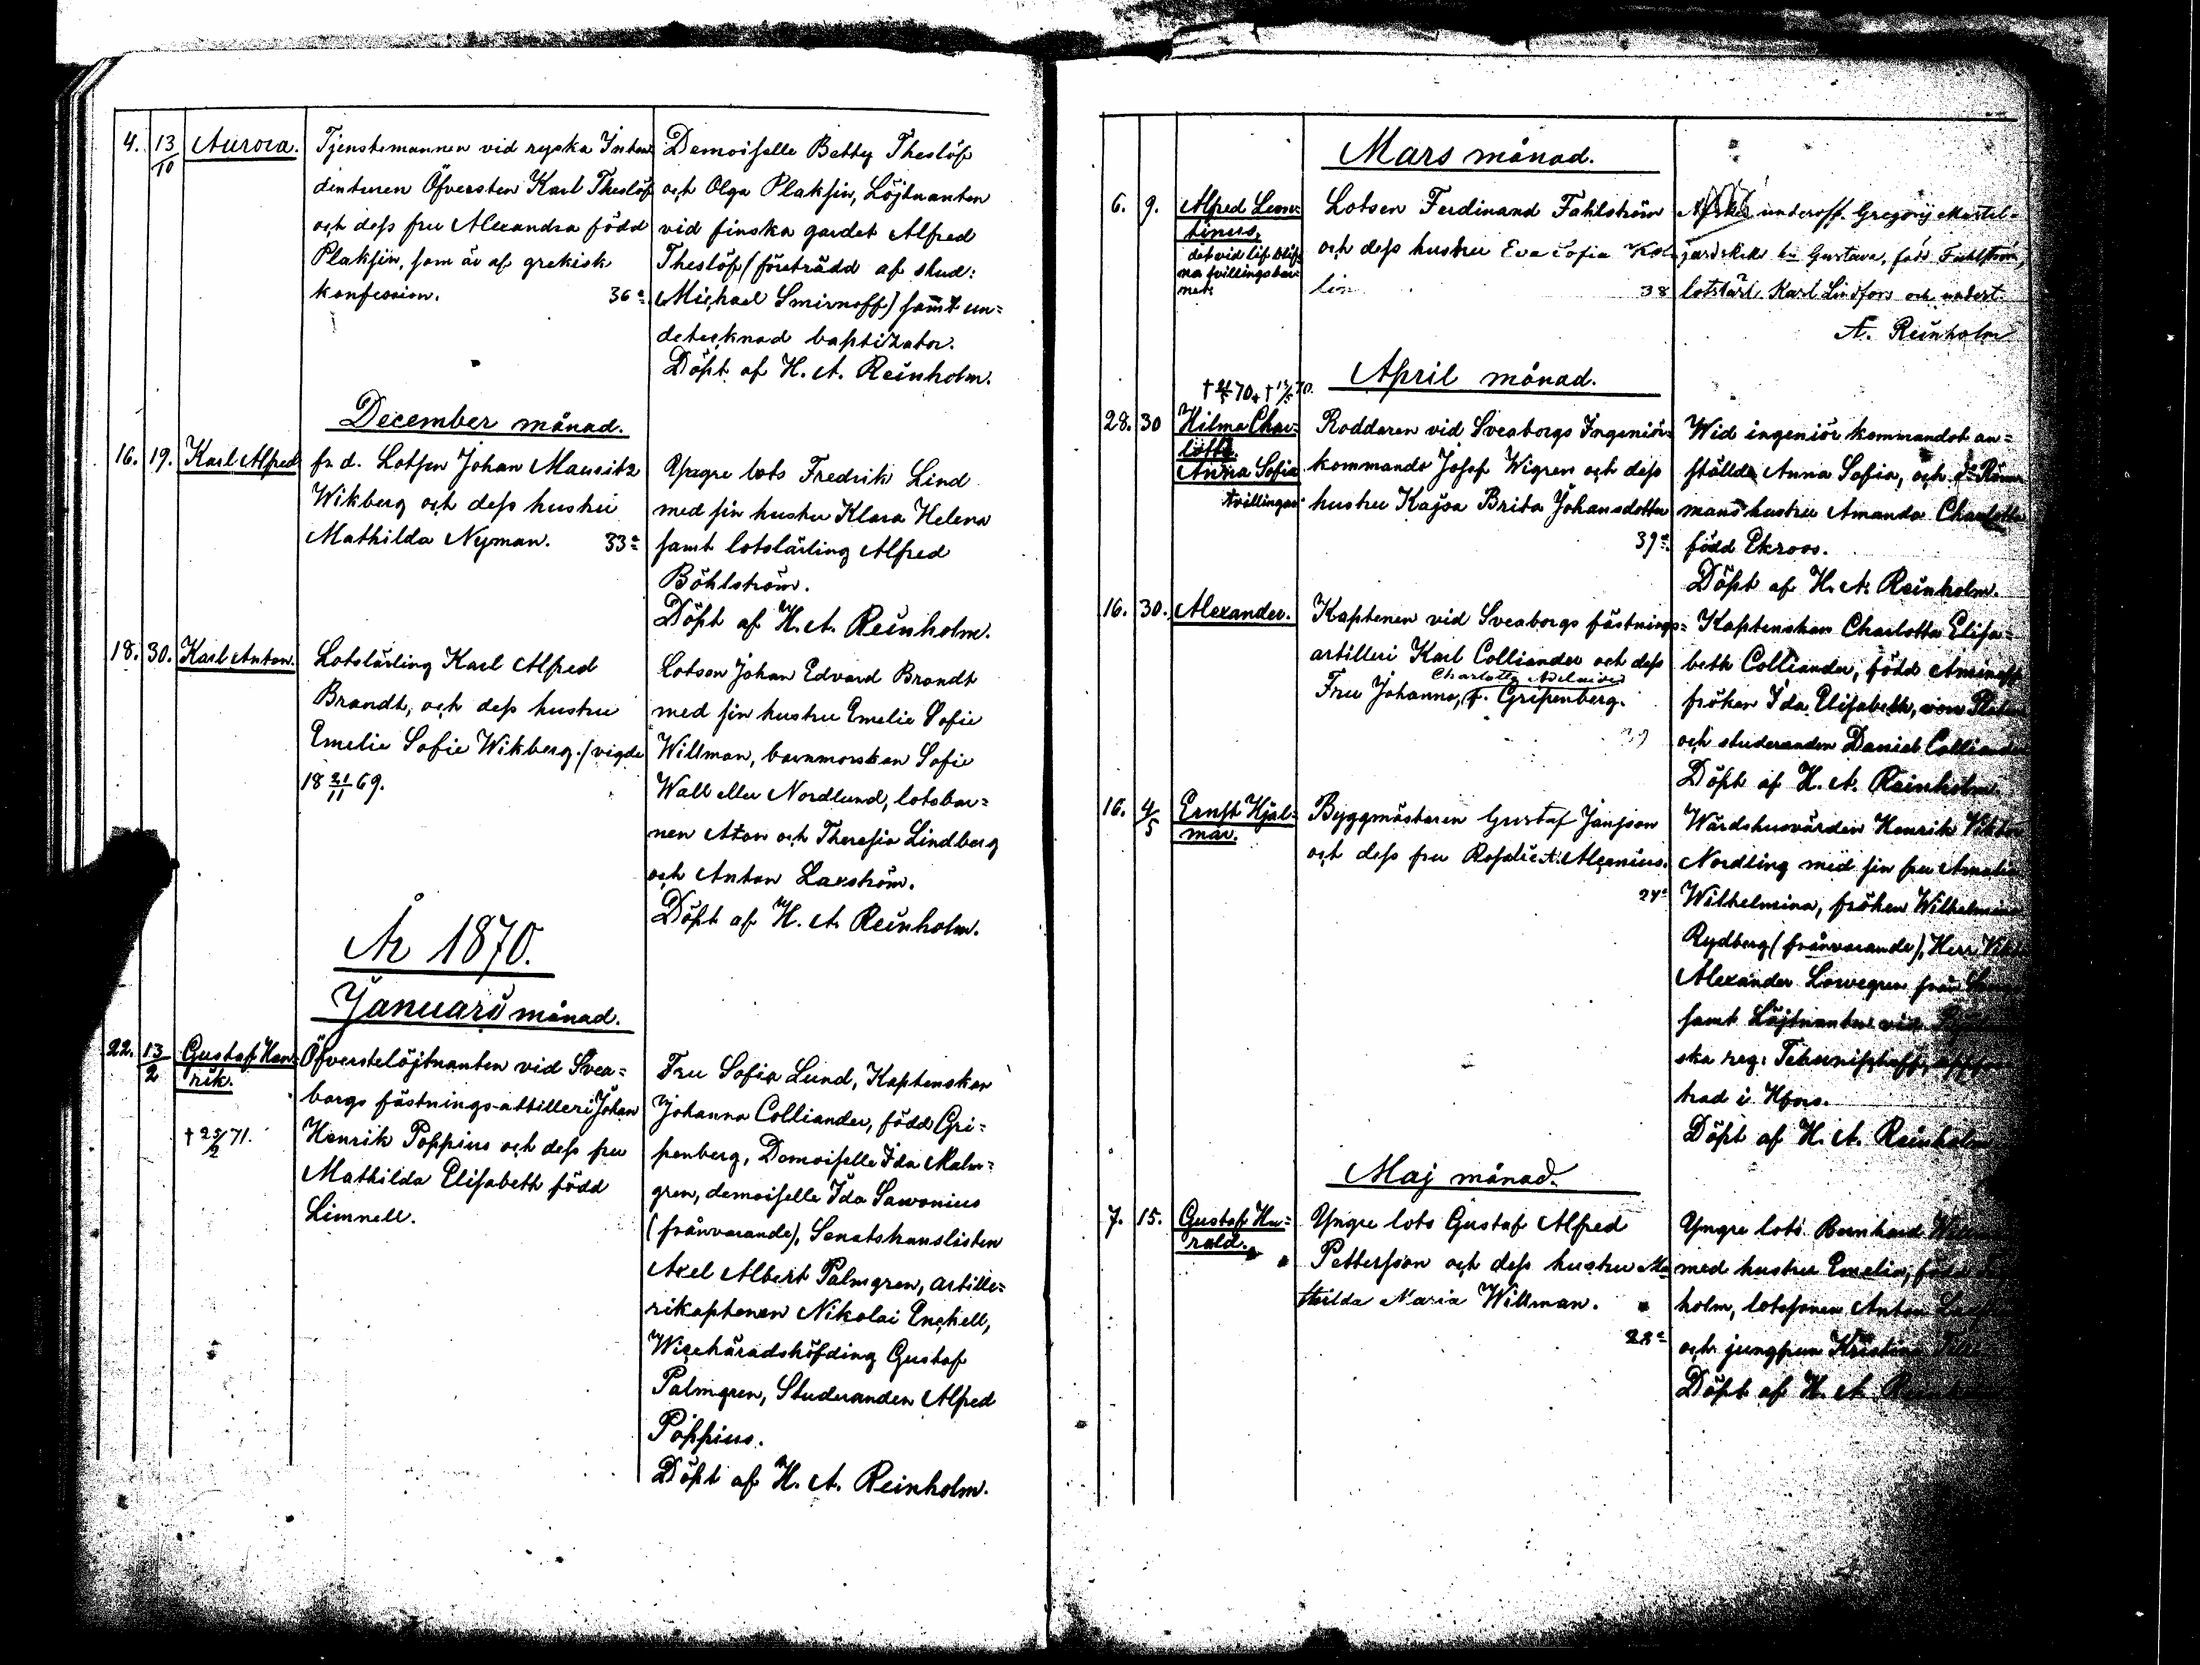 4. 13/10 Aurora. Tjenstemannen vid ryska Inten
denturen Öfversten Karl Theslöf
och dess fru Alexandra född
Plaksin, som är af grekisk
konfession. 36
Demoiselle Betty Theslöf
och Olga Plaksin, Löjtnanten
vid finska gardet Alfred
Theslöf (företrädd af stud:
Michael Smirnoff) samt un=
detecknad baptizator.
Döpt af H. A. Reinholm.
December månad.
16. 19. Karl Alfred fr. d. Lotsen Johan Mauritz
Wikberg och dess hustru
Mathilda Nyman. 33
Yngre lots Fredrik Lind
med sin hustru Klara Helena
samt lotslärling Alfred
Böhlström.
Döpt af H. A. Reinholm.
18. 30. Karl Anton. Lotslärling Karl Alfred
Brandt, och dess hustru
Emelie Sofie Wikberg. (vigde
18 21/11 69.
Lotsen Johan Edvard Brandt
med sin hustru Emelie Sofie
Willman, barnmorskan Sofie
Wall eller Nordlund, lotsbar=
nen Aton och Theresia Lindberg
och Anton Laxström.
Döpt af H. A. Reinholm.
År 1870.
Januarii månad.
22. 13/2 Gustaf Hen=
rik.
† 25/2 71.
Öfverstelöjtnanten vid Svea=
borgs fästnings-attilleri Johan
Henrik Poppius och dess fru
Mathilda Elisabeth född
Limnell.
Fru Sofia Lund, Kaptenskan
Johanna Colliander, född Gri=
penberg, Demoiselle Ida Malm=
gren, demoiselle Ida Sawonius
(frånvarande), Senatskanslisten
Axel Albert Palmgren, artille=
rikaptenen Nikolai Enckell,
Wicehäradshöfding Gustaf
Palmgren, Studeranden Alfred
Poppius.
Döpt af H. A. Reinholm.
Mars månad.
6. 9. Alfred Leon=
tinus,
det vid lif blif
na tvillingsbar
net.
Lotsen Ferdinand Fahlström
och dess hustru Eva Sofia Kol
lin 38
underoff. Gregorij
Gustava, född Fahlström,
lotslärl. Karl Lindfors och undert.
A. Reinholm
April månad.
28. 30 Hilma Char=
lotta.
Anna Sofia
tvillingar
Roddaren vid Sveaborgs Ingeniör=
kommando Josef Wigren och dess
hustru Kajsa Brita Johansdotter
39
Wid ingeniör kommandot an=
ställde Anna Sofia, och
mans hustru Amanda Charlotta
född Ekroos.
Döpt af H. A. Reinholm.
16. 30. Alexander. Kaptenen vid Sveaborgs fästnings=
artilleri Karl Colliander och dess
Charlotta Adelaide
Fru Johanna, f. Gripenberg.
Kaptenskan Charlotta Elisa=
beth Colliander, född Aminoff
fröken Ida Elisabeth, von
och studeranden Daniel Colliander
Döpt af H. A. Reinholm.
16. 4/5 Ernst Hjal=
mar.
Byggmästaren Gustaf Jansson
och dess fru Rosalie A. Alcenius.
24
Wärdshusvärden Henrik Viktor
Nordling med sin fru Amalia
Wilhelmina, fröken Wilhelmina
Rydberg (frånvarande), Herr
Alexander Lowegren från
samt Löjtnanten vid
ska reg:
trad i Hfors.
Döpt af H. A. Reinholm
Maj månad.
7. 15. Gustaf Ha=
rald.
Yngre lots Gustaf Alfred
Pettersson och dess hustru Ma
thilda Maria Willman.
22
Yngre lots Bernhard
med hustru Emelia, född
holm, lotssonen Anton
och jungfrun Kristina
Döpt af H. A. Reinholm